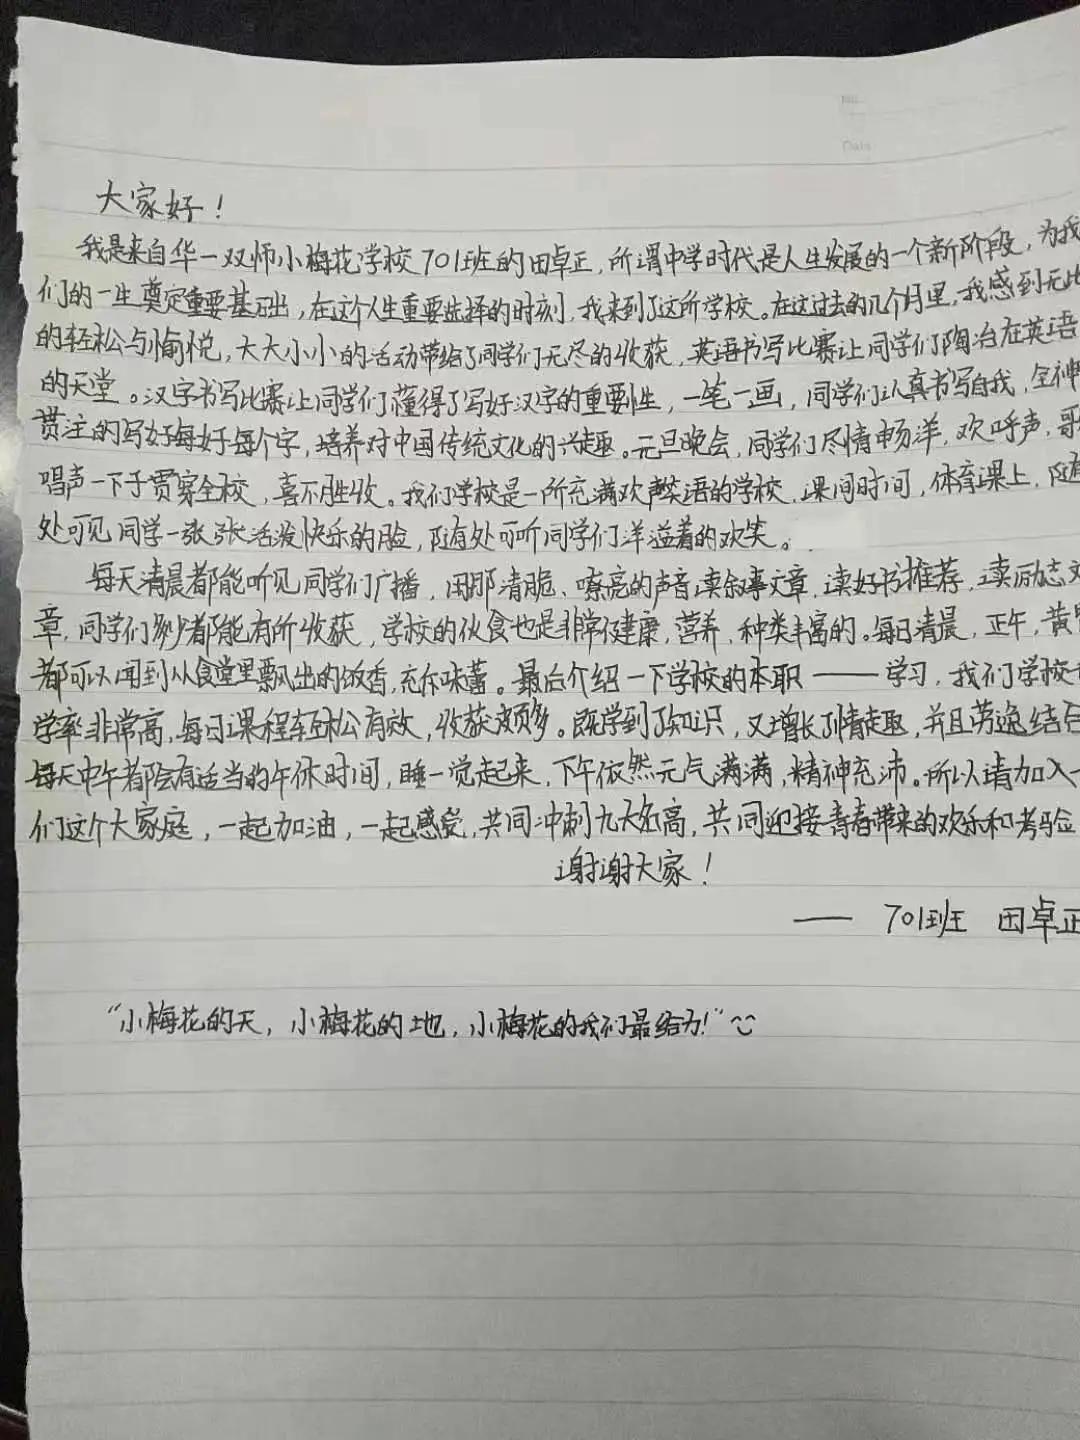 No.
Date
大家好！
我是来自华一双师小梅花学校701班的田卓正，所谓中学时代是人生发展的一个新阶段，为我
们的一生奠定重要基础，在这个人生重要选择的时刻，我来到了这所学校。在这过去的几个月里，我感到无比
的轻松与愉悦，大大小小的活动带给了同学们无尽的收获，英语书写比赛让同学们陶冶在英语
的天堂。汉字书写比赛让同学们懂得了写好汉字的重要性，一笔一画，同学们认真书写自我，全神
贯注的写好每好每个字，培养对中国传统文化的兴趣。元旦晚会，同学们尽情畅洋，欢呼声，歌
唱声一下子贯穿全校，喜不胜收。我们学校是一所充满欢声笑语的学校，课间时间，体育课上，随
处可见同学一张张活泼快乐的脸，随处可听同学们洋溢着的欢笑。
每天清晨都能听见同学们广播，用那清脆、嘹亮的声音读叙事文章，读好书推荐，读励志文
章，同学们多少都能有所收获，学校的伙食也是非常健康，营养，种类丰富的。每日清晨，正午，黄
都可以闻到从食堂里飘出的饭香，充斥味蕾。最后介绍一下学校的本职——学习，我们学校
学率非常高，每日课程轻松有效，收获颇多。既学到了知识，又增长了情趣，并且劳逸结合
每天中午都会有适当的午休时间，睡一觉起来，下午依然元气满满，精神充沛。所以请加入
们这个大家庭，一起加油，一起感受，共同冲刺九天之高，共同迎接青春带来的欢乐和考验
谢谢大家！
—— 701班 田卓正
“小梅花的天，小梅花的地，小梅花的我们最给力！”